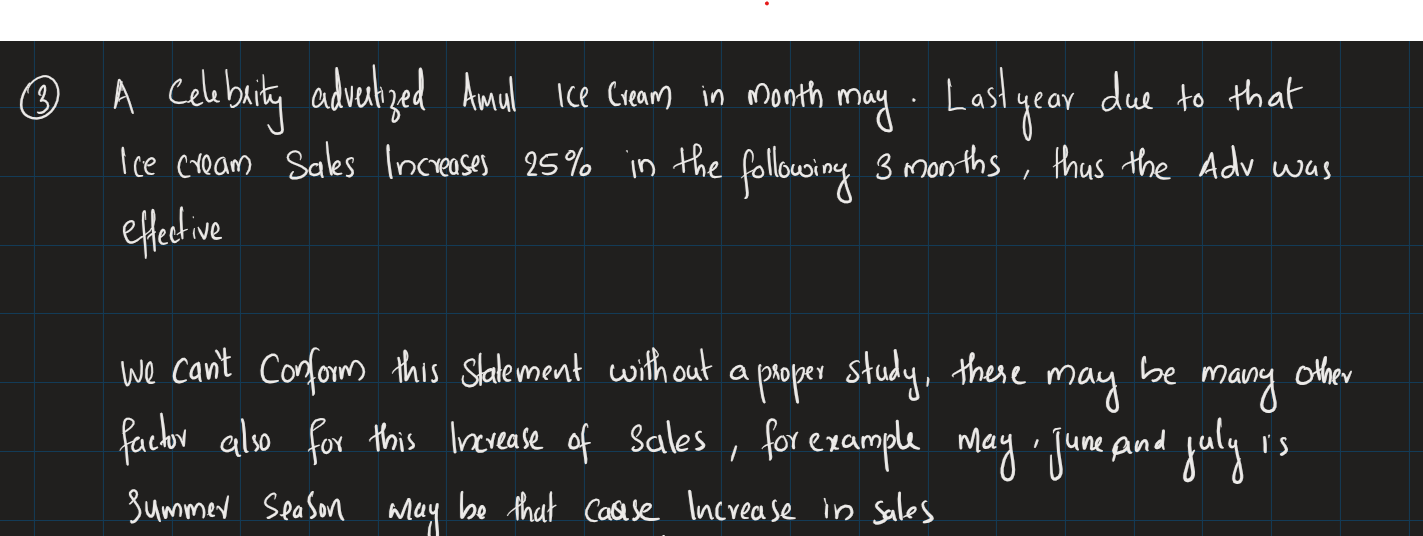 ③ A Celebrity advertized Amul Ice Cream in month may. Last year due to that
Ice cream Sales Increases 25% in the following 3 months, thus the Adv was
effective
We can't Conform this Statement without a proper study, there may be many other
factor also for this Increase of Sales, for example may, june and july is
Summer Season may be that caase Increase in sales